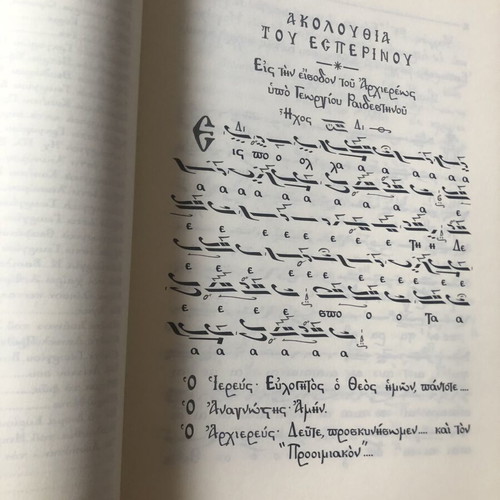 ΑΚΟΛΟΥΘΙΑ
ΤΟΥ ΕΣΠΕΡΙΝΟΥ
Εἰς τὴν εἴσοδον τοῦ Ἀρχιερέως
ὑπὸ Γεωργίου Ραιδεστηνοῦ
Ἦχος Δι
Ε Δι
ις πο ο ολ λα α α α α
α α α α α α α α ε
ε ε ε ε ε ε ε Τη η Δε
ε ε ε ε ε ε ε ε ε
ε ε ε ε σπο ο ο Τα α
α α α α α
Ὁ Ἱερεύς· Εὐλογητὸς ὁ Θεὸς ἡμῶν, πάντοτε....
Ὁ Ἀναγνώστης· Ἀμήν.
Ὁ Ἀρχιερεύς· Δεῦτε, προσκυνήσωμεν.... καὶ τὸν
"Προοιμιακὸν"....